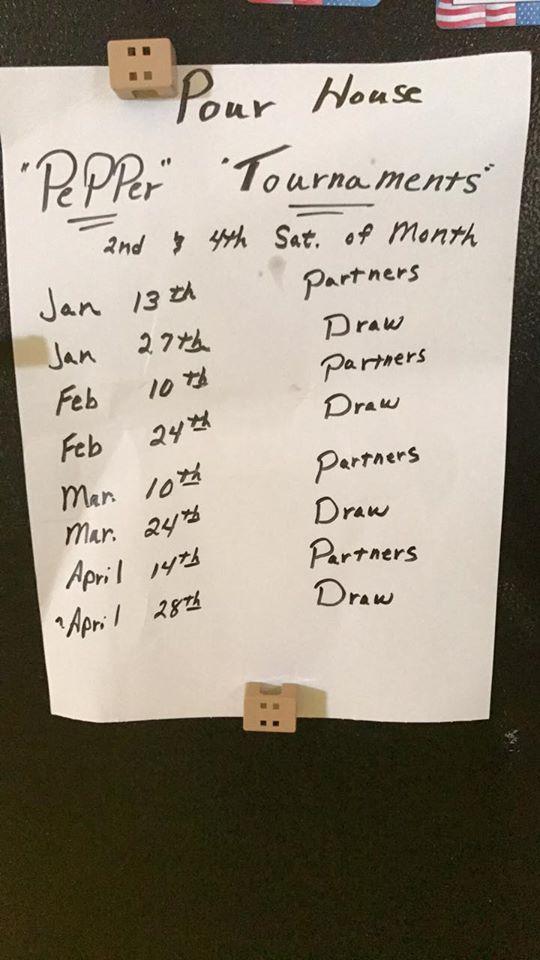 Pour House
"PePPer" "Tournaments"
2nd & 4th Sat. of Month
Jan 13th Partners
Jan 27th Draw
Feb 10th Partners
Feb 24th Draw
Mar. 10th Partners
Mar. 24th Draw
April 14th Partners
April 28th Draw